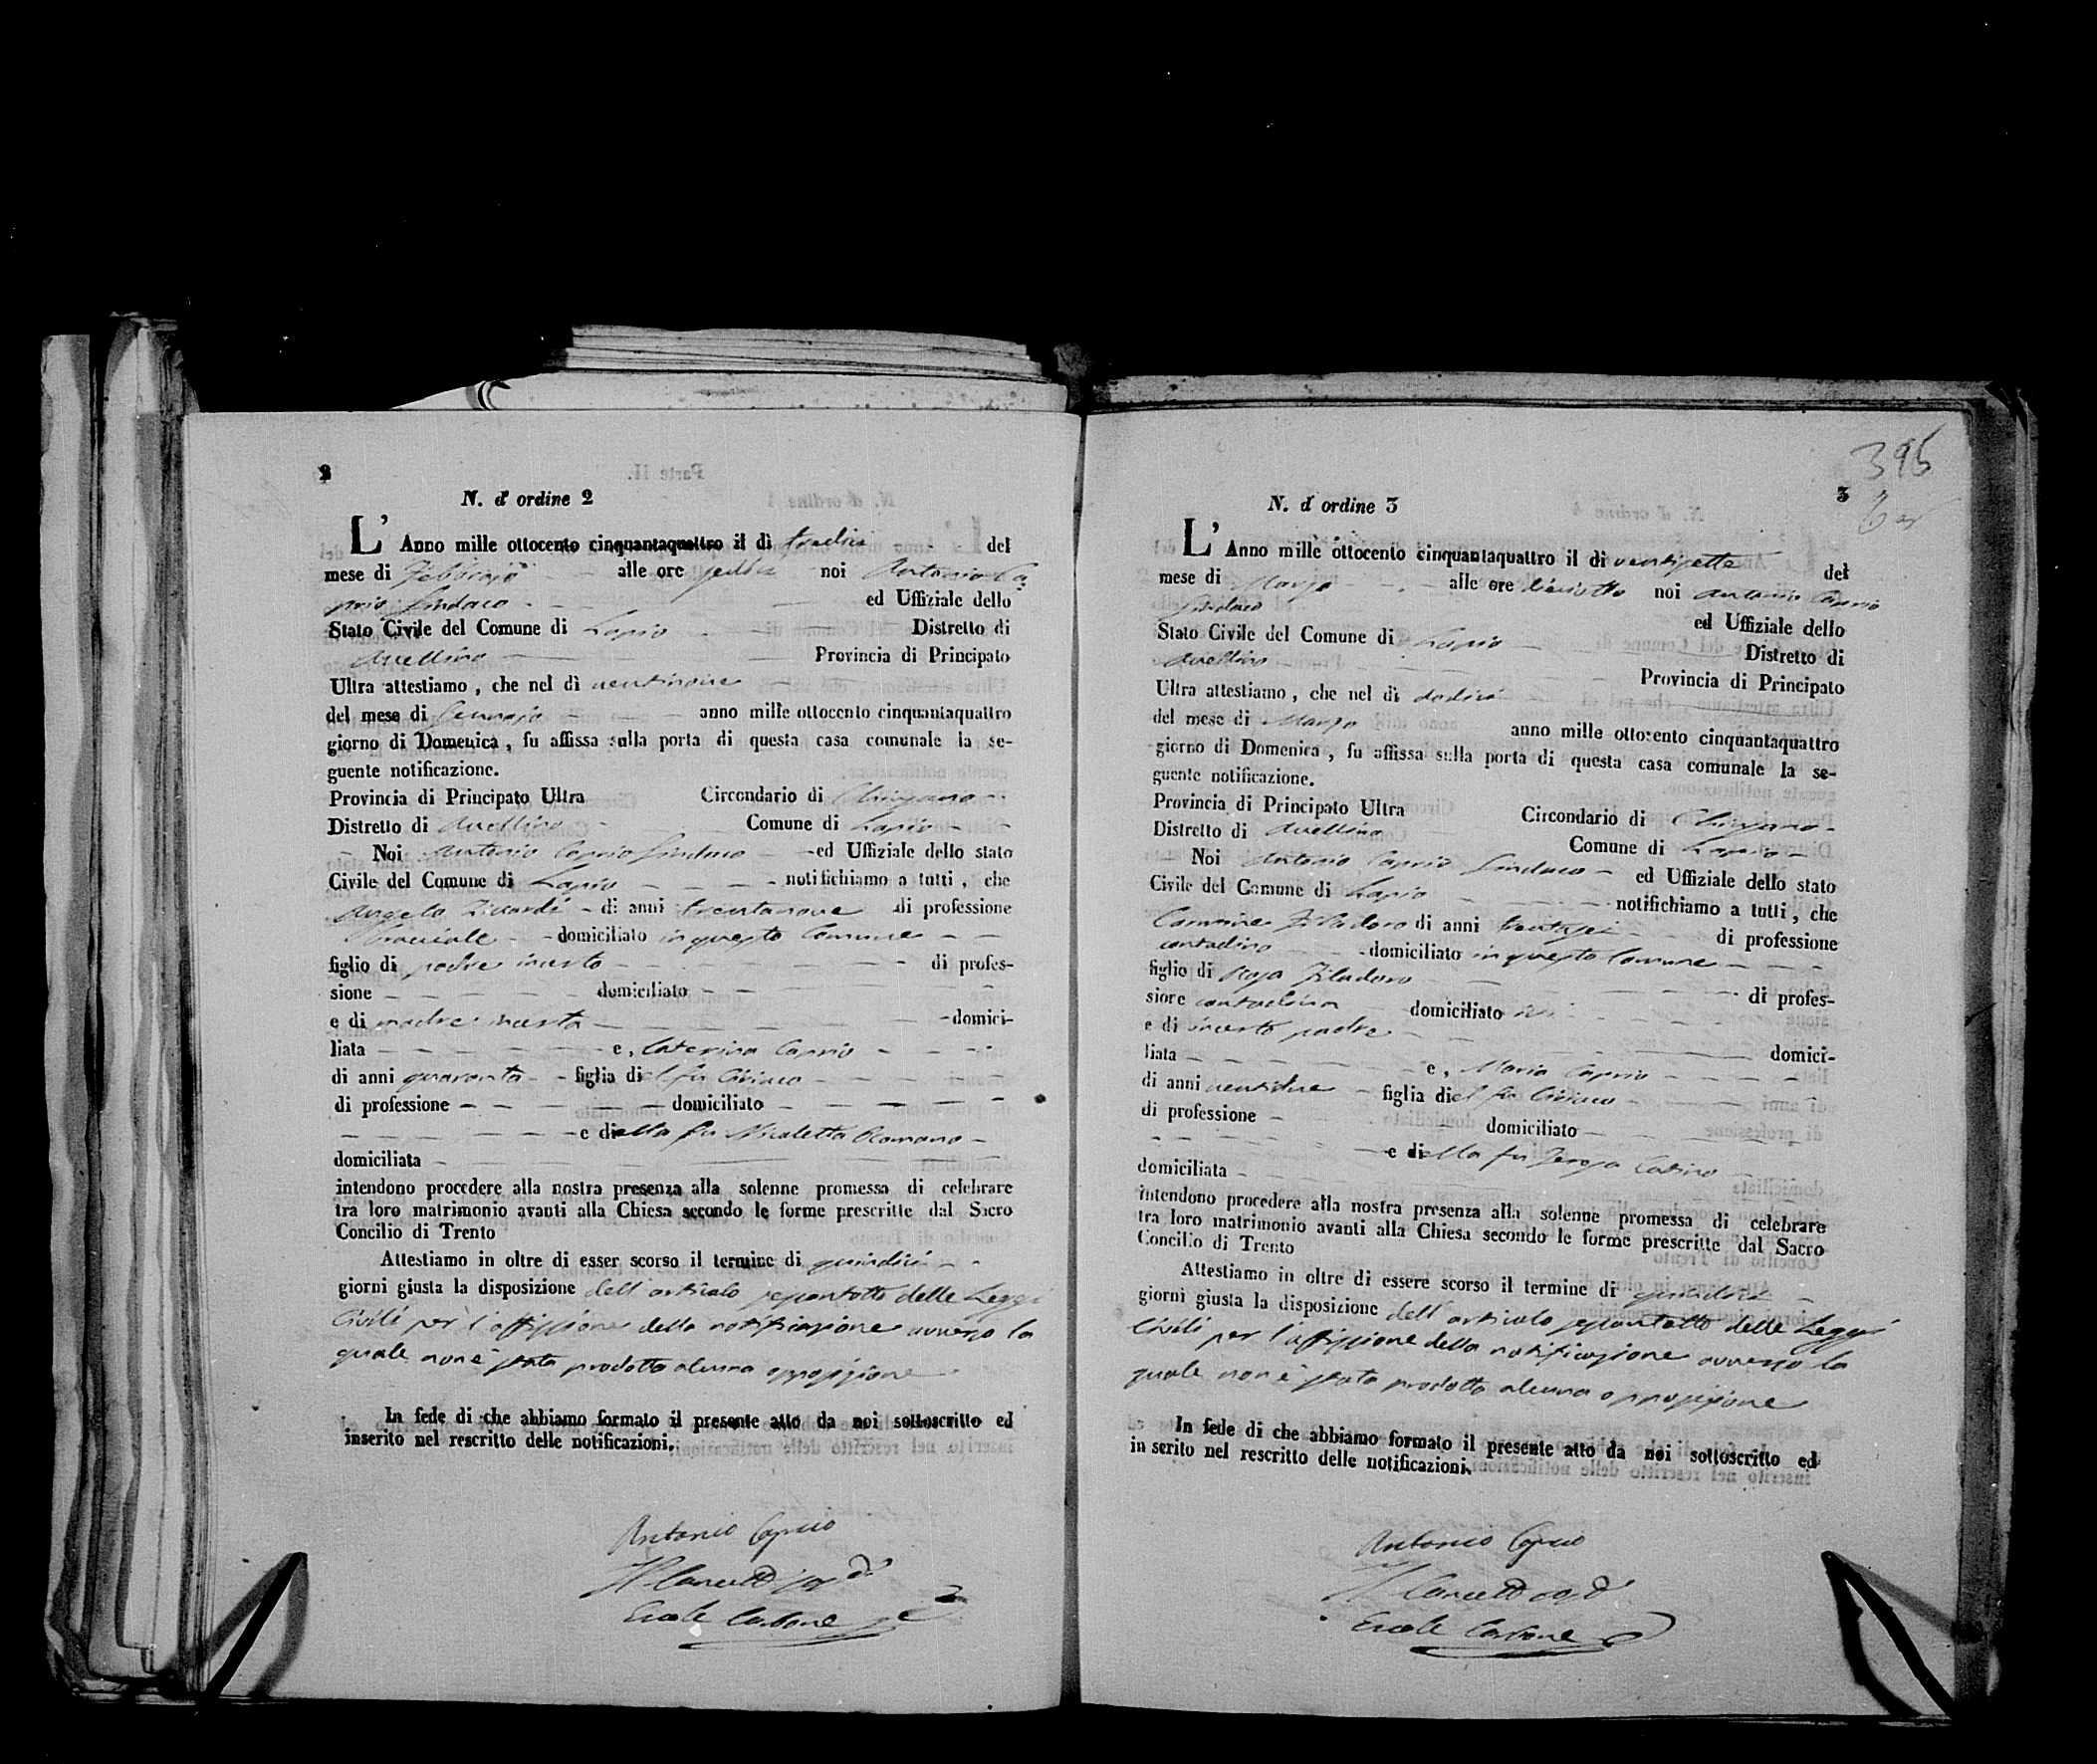 2
N. d' ordine 2
L' Anno mille ottocento cinquantaquattro il dì tredici del
mese di Febbrajo alle ore sedici noi Antonio Ca
prio Sindaco ed Uffiziale dello
Stato Civile del Comune di Lapio Distretto di
Avellino Provincia di Principato
Ultra attestiamo, che nel dì ventinove
del mese di Gennajo anno mille ottocento cinquantaquattro
giorno di Domenica, fu affissa sulla porta di questa casa comunale la se-
guente notificazione.
Provincia di Principato Ultra Circondario di Chiusano
Distretto di Avellino Comune di Lapio
Noi Antonio Caprio Sindaco ed Uffiziale dello stato
Civile del Comune di Lapio notifichiamo a tutti, che
Angelo di anni trentanove di professione
domiciliato in questo Comune
figlio di padre incerto di profes-
sione domiciliato
e di madre incerta domici-
liata e, Caterina Caprio
di anni quaranta figlia del fu Ciriaco
di professione domiciliato
e della fu Nicoletta Romano
domiciliata
intendono procedere alla nostra presenza alla solenne promessa di celebrare
tra loro matrimonio avanti alla Chiesa secondo le forme prescritte dal Sacro
Concilio di Trento
Attestiamo in oltre di esser scorso il termine di quindici
giorni giusta la disposizione dell'articolo sessantotto delle Leggi
Civili per l'affissione della notificazione avverso la
quale non è stata prodotta alcuna opposizione
In fede di che abbiamo formato il presente atto da noi sottoscritto ed
inserito nel rescritto delle notificazioni.
Antonio Caprio
Ercole Carbone
395
3
N. d' ordine 3
L' Anno mille ottocento cinquantaquattro il dì ventisette del
mese di Marzo alle ore diciotto noi Antonio Caprio
Sindaco ed Uffiziale dello
Stato Civile del Comune di Lapio Distretto di
Avellino Provincia di Principato
Ultra attestiamo, che nel dì dodici
del mese di Marzo anno mille ottocento cinquantaquattro
giorno di Domenica, fu affissa sulla porta di questa casa comunale la se-
guente notificazione.
Provincia di Principato Ultra Circondario di Chiusano
Distretto di Avellino Comune di Lapio
Noi Antonio Caprio Sindaco ed Uffiziale dello stato
Civile del Comune di Lapio notifichiamo a tutti, che
Carmine Filadoro di anni trentasei di professione
contadino domiciliato in questo Comune
figlio di Rosa Filadoro di profes-
sione contadina domiciliato ivi
e di incerto padre domici-
liata e, Maria Caprio
di anni ventidue figlia del fu Ciriaco
di professione domiciliato
e della fu Teresa
domiciliata
intendono procedere alla nostra presenza alla solenne promessa di celebrare
tra loro matrimonio avanti alla Chiesa secondo le forme prescritte dal Sacro
Concilio di Trento
Attestiamo in oltre di essere scorso il termine di quindici
giorni giusta la disposizione dell'articolo sessantotto delle Leggi
Civili per l'affissione della notificazione avverso la
quale non è stata prodotta alcuna opposizione
In fede di che abbiamo formato il presente atto da noi sottoscritto ed
in serito nel rescritto delle notificazioni.
Antonio Caprio
Ercole Carbone